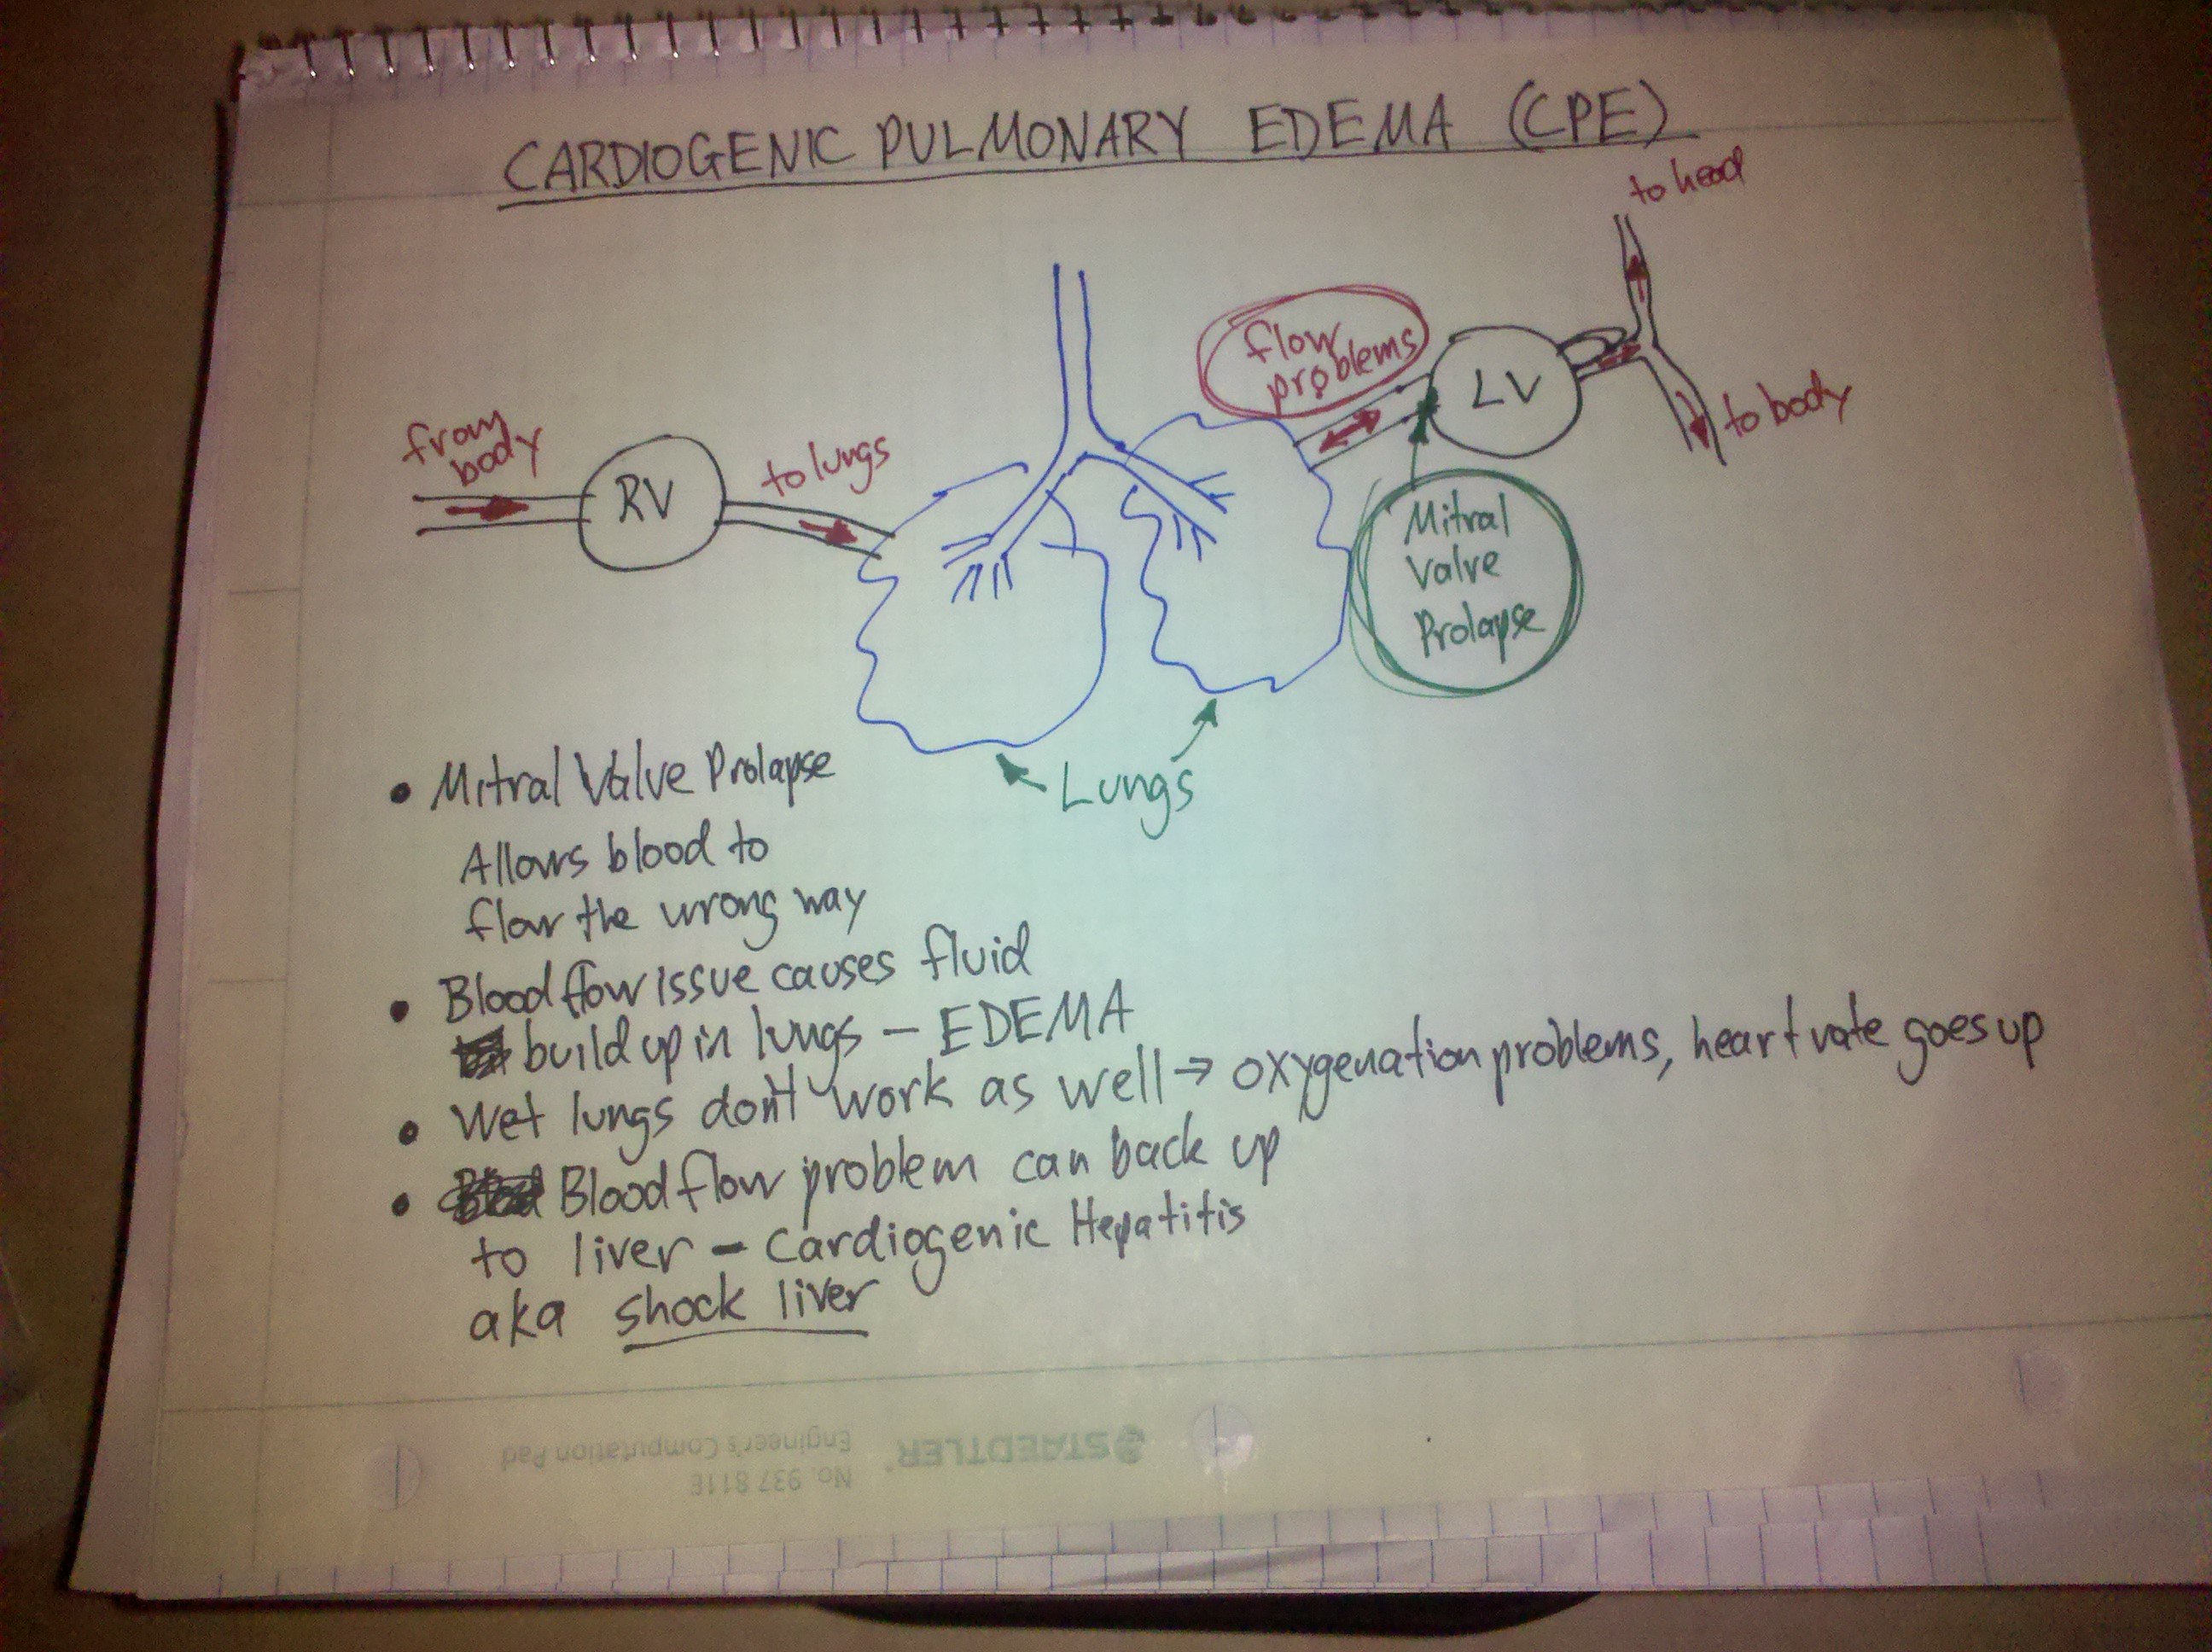 CARDIOGENIC PULMONARY EDEMA (CPE)
to head
flow
problems
LV
to body
from
body
RV
to lungs
Mitral
Valve
Prolapse
Lungs
• Mitral Valve Prolapse
Allows blood to
flow the wrong way
• Blood flow issue causes fluid
build up in lungs — EDEMA
• Wet lungs don't work as well → oxygenation problems, heart rate goes up
• Blood flow problem can back up
to liver - Cardiogenic Hepatitis
aka shock liver
STAEDTLER
No. 937 811E
Engineer's Computation Pad